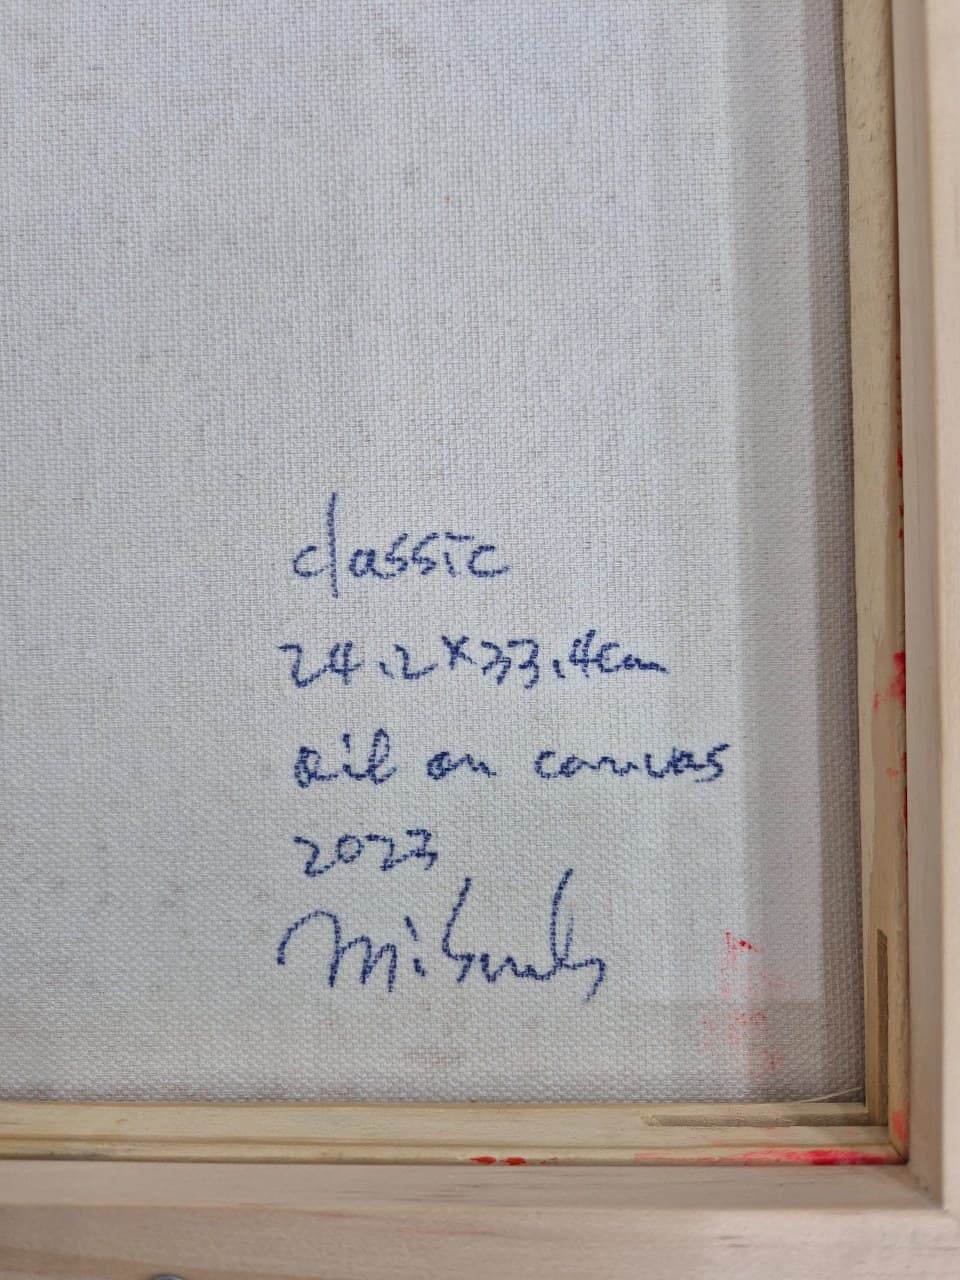 classic
24.2×33.4cm
oil on canvas
2023